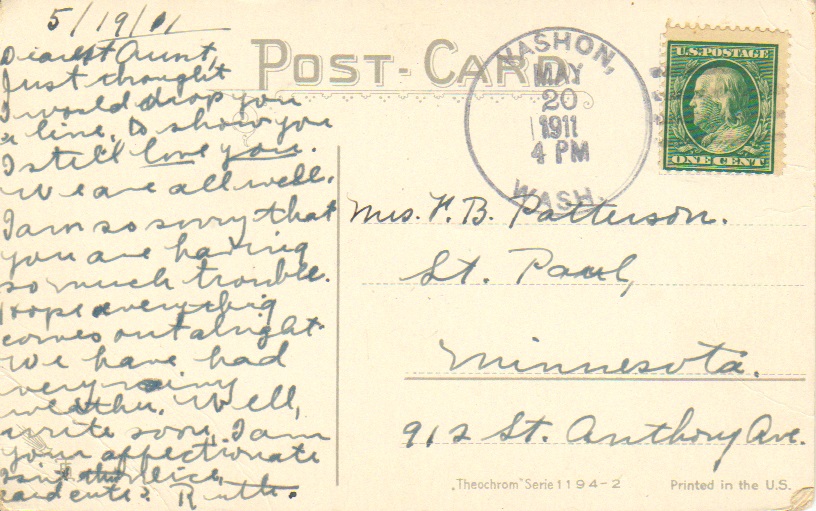 5/19/11
Dearest Aunt,
Just thought
I would drop you
a line, to show you
I still love you.
We are all well.
I am so sorry that
you are having
so much trouble.
Hope everything
comes out alright.
We have had
very rainy
weather. Well,
write soon, I am
your affectionate
niece,
Isn't this
card cute? Ruth.
POST-CARD
VASHON,
MAY
20
1911
4 PM
WASH.
U.S. POSTAGE
ONE CENT
Mrs. F. B. Patterson.
St. Paul,
Minnesota.
912 St. Anthony Ave.
„Theochrom" Serie 1194-2
Printed in the U.S.